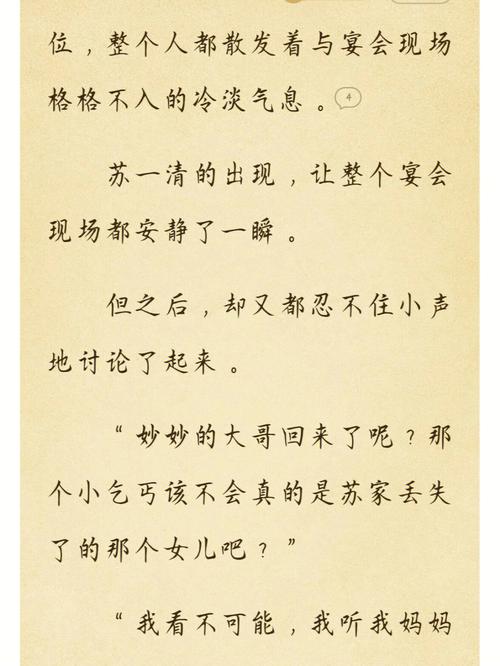 位，整个人都散发着与宴会现场
格格不入的冷淡气息。 4
苏一清的出现，让整个宴会
现场都安静了一瞬。
但之后，却又都忍不住小声
地讨论了起来。
“妙妙的大哥回来了呢？那
个小乞丐该不会真的是苏家丢失
了的那个女儿吧？”
“我看不可能，我听我妈妈